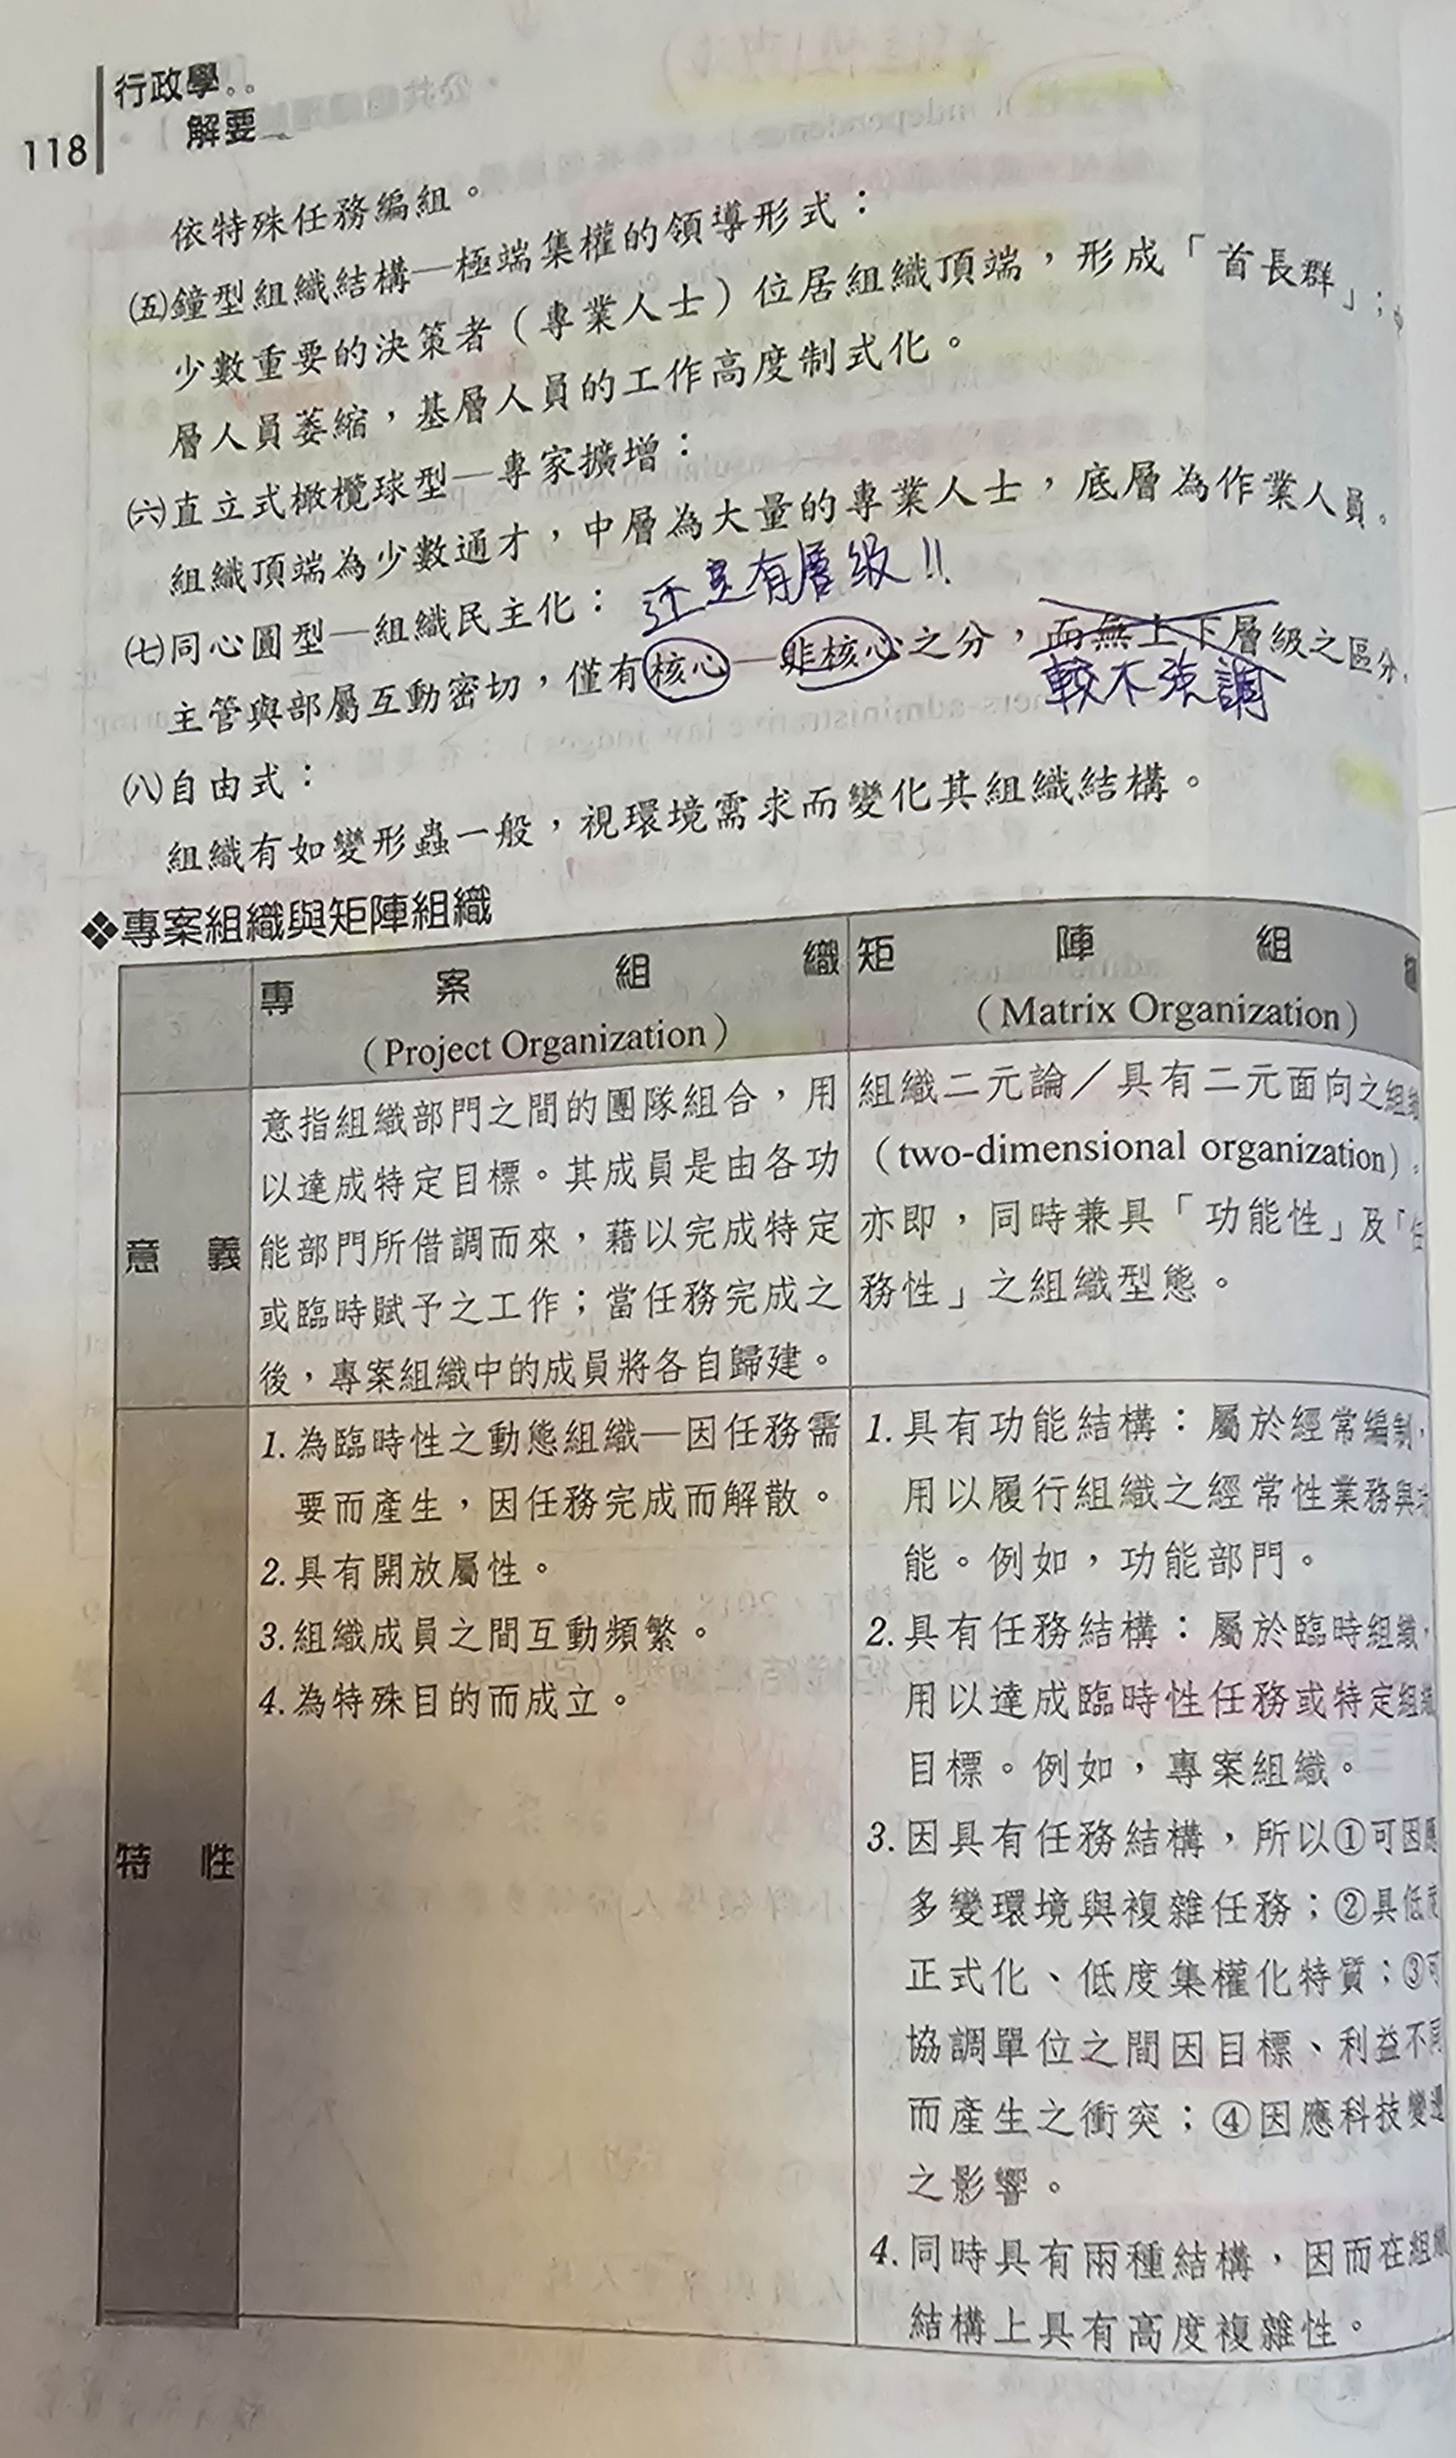 行政學
解要
118
依特殊任務編組。
㈤鐘型組織結構—極端集權的領導形式：
少數重要的決策者（專業人士）位居組織頂端，形成「首長群」；
層人員萎縮，基層人員的工作高度制式化。
㈥直立式橄欖球型—專家擴增：
組織頂端為少數通才，中層為大量的專業人士，底層為作業人員。
㈦同心圓型—組織民主化：還是有層級!!
主管與部屬互動密切，僅有核心—非核心之分，而無上下層級之區分
較不強調
㈧自由式：
組織有如變形蟲一般，視環境需求而變化其組織結構。
❖專案組織與矩陣組織
專案組織
（Project Organization）
矩陣組
（Matrix Organization）
意義
意指組織部門之間的團隊組合，用
以達成特定目標。其成員是由各功
能部門所借調而來，藉以完成特定
或臨時賦予之工作；當任務完成之
後，專案組織中的成員將各自歸建。
組織二元論／具有二元面向之組織
（two-dimensional organization）。
亦即，同時兼具「功能性」及「任
務性」之組織型態。
特性
1.為臨時性之動態組織—因任務需
要而產生，因任務完成而解散。
2.具有開放屬性。
3.組織成員之間互動頻繁。
4.為特殊目的而成立。
1.具有功能結構：屬於經常編制，
用以履行組織之經常性業務與
能。例如，功能部門。
2.具有任務結構：屬於臨時組織，
用以達成臨時性任務或特定組織
目標。例如，專案組織。
3.因具有任務結構，所以①可因應
多變環境與複雜任務；②具低度
正式化、低度集權化特質；③可
協調單位之間因目標、利益不同
而產生之衝突；④因應科技變遷
之影響。
4.同時具有兩種結構，因而在組織
結構上具有高度複雜性。